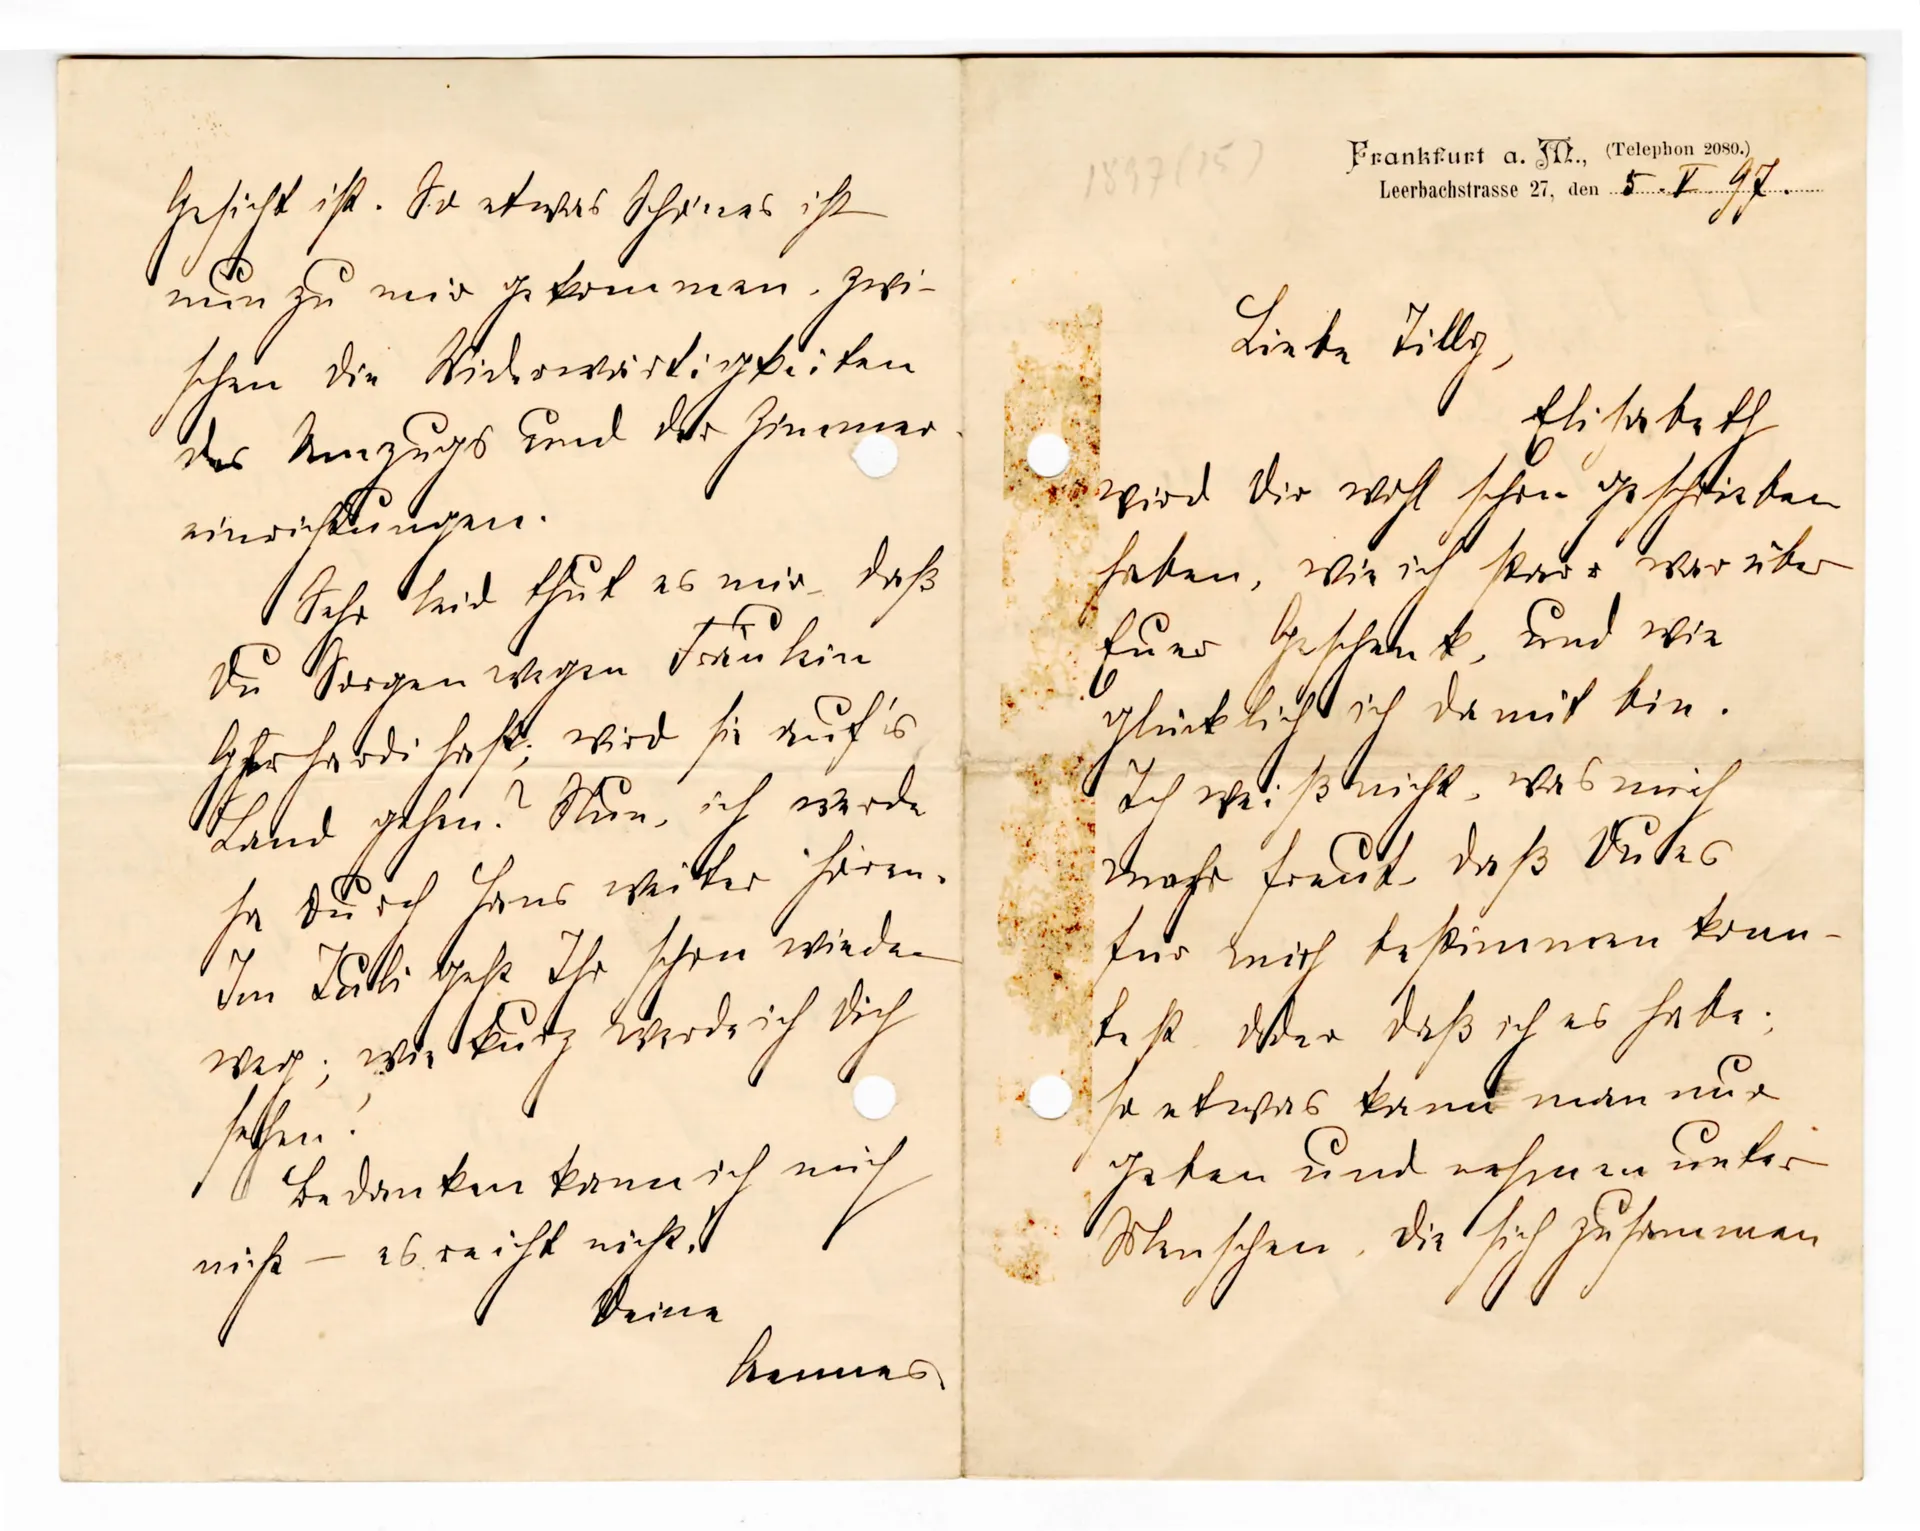 1897 (15)
Frankfurt a. M., (Telephon 2080.)
Leerbachstrasse 27, den 5. V. 97.
Liebe Tilly,
Elisabeth
wird Dir wohl schon geschrieben
haben, wie ich starr war über
Euer Geschenk, und wie
glücklich ich damit bin.
Ich weiß nicht, was mich
mehr freut, daß Du es
für mich bestimmen konn-
test oder daß ich es habe;
so etwas kann man nur
geben und nehmen unter
Menschen, die sich zusammen
Gesicht ist. So etwas Schönes ist
nun zu mir gekommen, zwi-
schen die Widerwärtigkeiten
des Umzugs und der Zimmer-
einrichtungen.
Sehr leid thut es mir, daß
Du Sorgen wegen Fräulein
Gerhardi hast; wird sie auf's
Land gehen? Nun, ich werde
ja durch Hans weiter hören.
Im Juli geht Ihr schon wieder
weg; wie kurz werde ich Dich
sehen!
Bedanken kann ich mich
nicht – es reicht nicht!
Deine